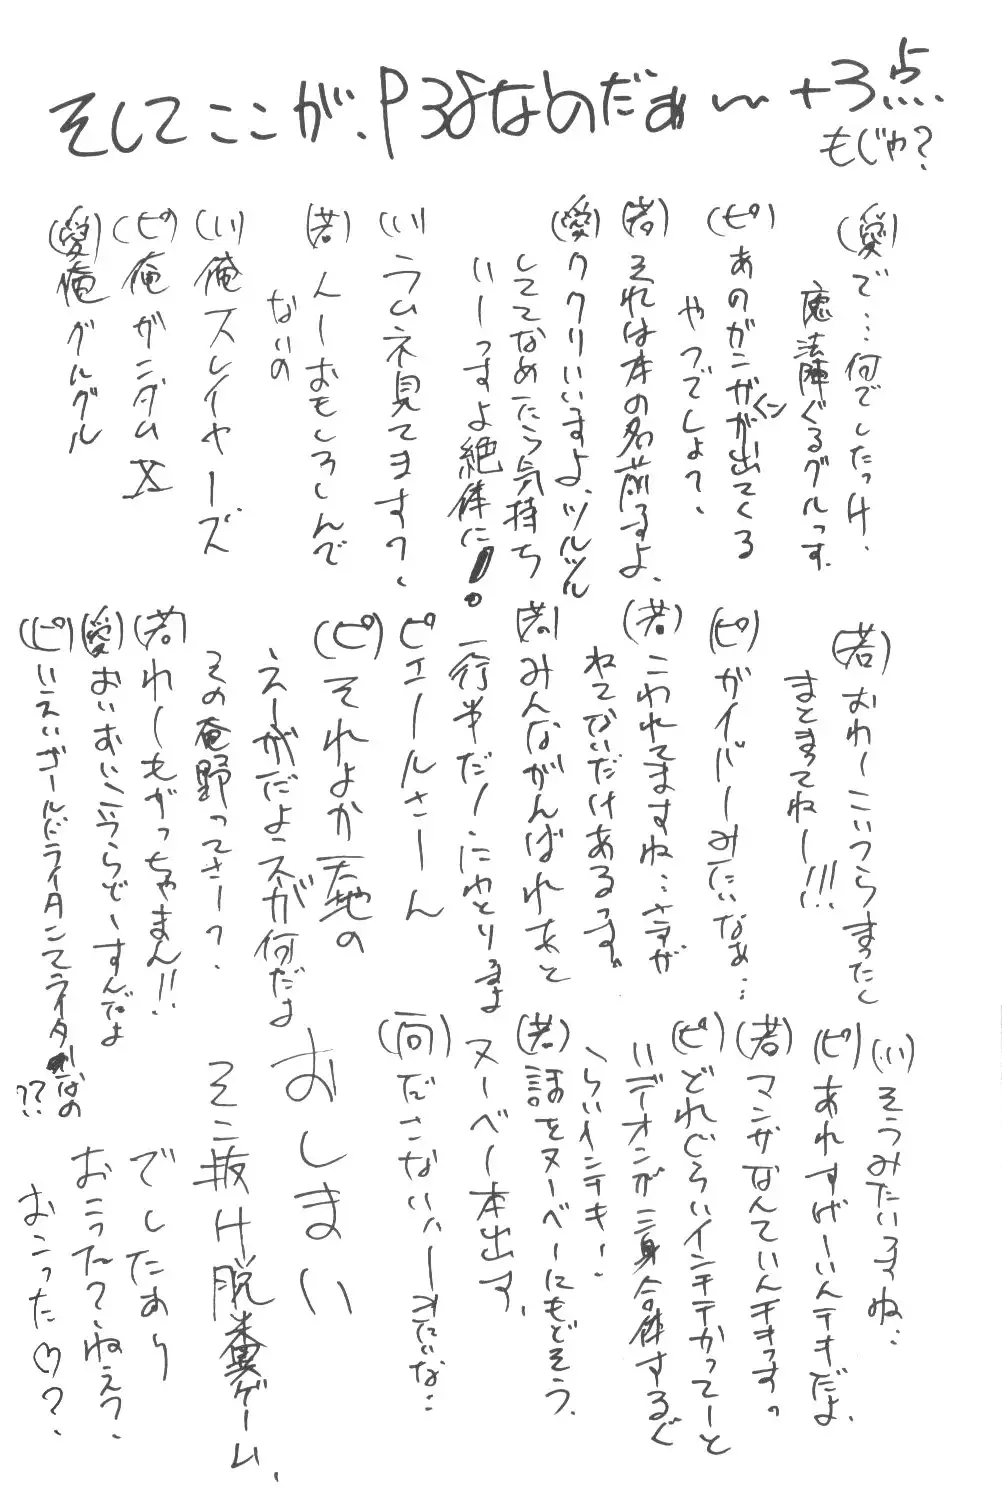 そしてここが、P38なのだぁ〜+3点
もじゃ?
(愛)で…何でしたっけ、
魔法陣ぐるグルっす。
(ピ)あのガンガが出てくる
やつでしょ?、
(岩)それは本の名前るよ、
(愛)ククリいいますよ、ツルツル
しててなめたら気持ち
いーっすよ絶体に!。
(い)ラムネ見てます?、
(若)んーおもしろんで
ないの
(い)俺スレイヤーズ
(ピ)俺ガンダムX
(愛)俺グルグル
(若)おわーこいつらまったく
まとまってねー!!!
(ピ)ガイバーみたいなぁ…
(若)こわれてますね…さすが
ねてないだけあるっす。
(若)みんながんばれあと
一行半だ!にわとりるよ
ピエールさーん
(ピ)それよか天地の
えーがだよえーが何だよ
その俺野ってさー?、
(若)れーもがっちゃまん!!
(愛)おいおいこいつらどーすんだよ
(ピ)いえいゴールドライタンてライターなの
??
(い)そうみたいすね…
(ピ)あれすげーいんテキだよ、
(若)マンガなんていんチキっす。
(ピ)どれぐらいインチキかってーと
いデオンが三身合体するぐ
らいインチキ!
(若)話をヌーベーにもどそう、
ヌーベー本出す、
(向)ださないハーみたいな…
おしまい
そこ抜け脱糞ゲーム、
でしたあり
おこった?、ねえ?、
おこった♡?、